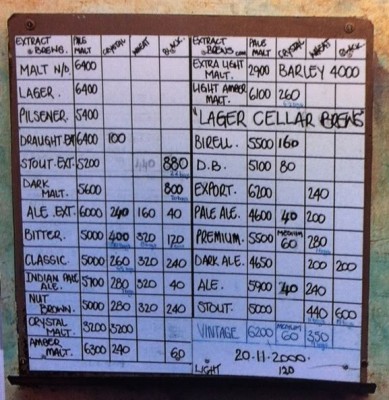 EXTRACT BREWS. PALE MALT CRYSTAL WHEAT BLACK
MALT N/D 6400
LAGER. 6400
PILSENER. 5400
DRAUGHT EXT 6400 100
STOUT.EXT. 5200 440 880
DARK MALT. 5600 800
ALE.EXT. 6000 240 160 40
BITTER. 5000 400 320 120
CLASSIC 5000 260 320 240
INDIAN PALE ALE. 5700 280 320 40
NUT BROWN. 5000 280 320 240
CRYSTAL MALT. 3200 3200
AMBER MALT. 6300 240 60
EXTRACT BREWS PALE MALT CRYSTAL WHEAT BLACK
EXTRA LIGHT MALT. 2900 BARLEY 4000
LIGHT AMBER MALT. 6100 260
"LAGER CELLAR BREWS"
BIRELL. 5500 160
D.B. 5100 80
EXPORT. 6200 240
PALE ALE. 4600 40 200
PREMIUM. 5500 MEDIUM 60 280
DARK ALE. 4650 200 200
ALE. 5900 40 240
STOUT. 5000 440 600
VINTAGE 6200 MEDIUM 60 350
20.11.2000.
LIGHT 120